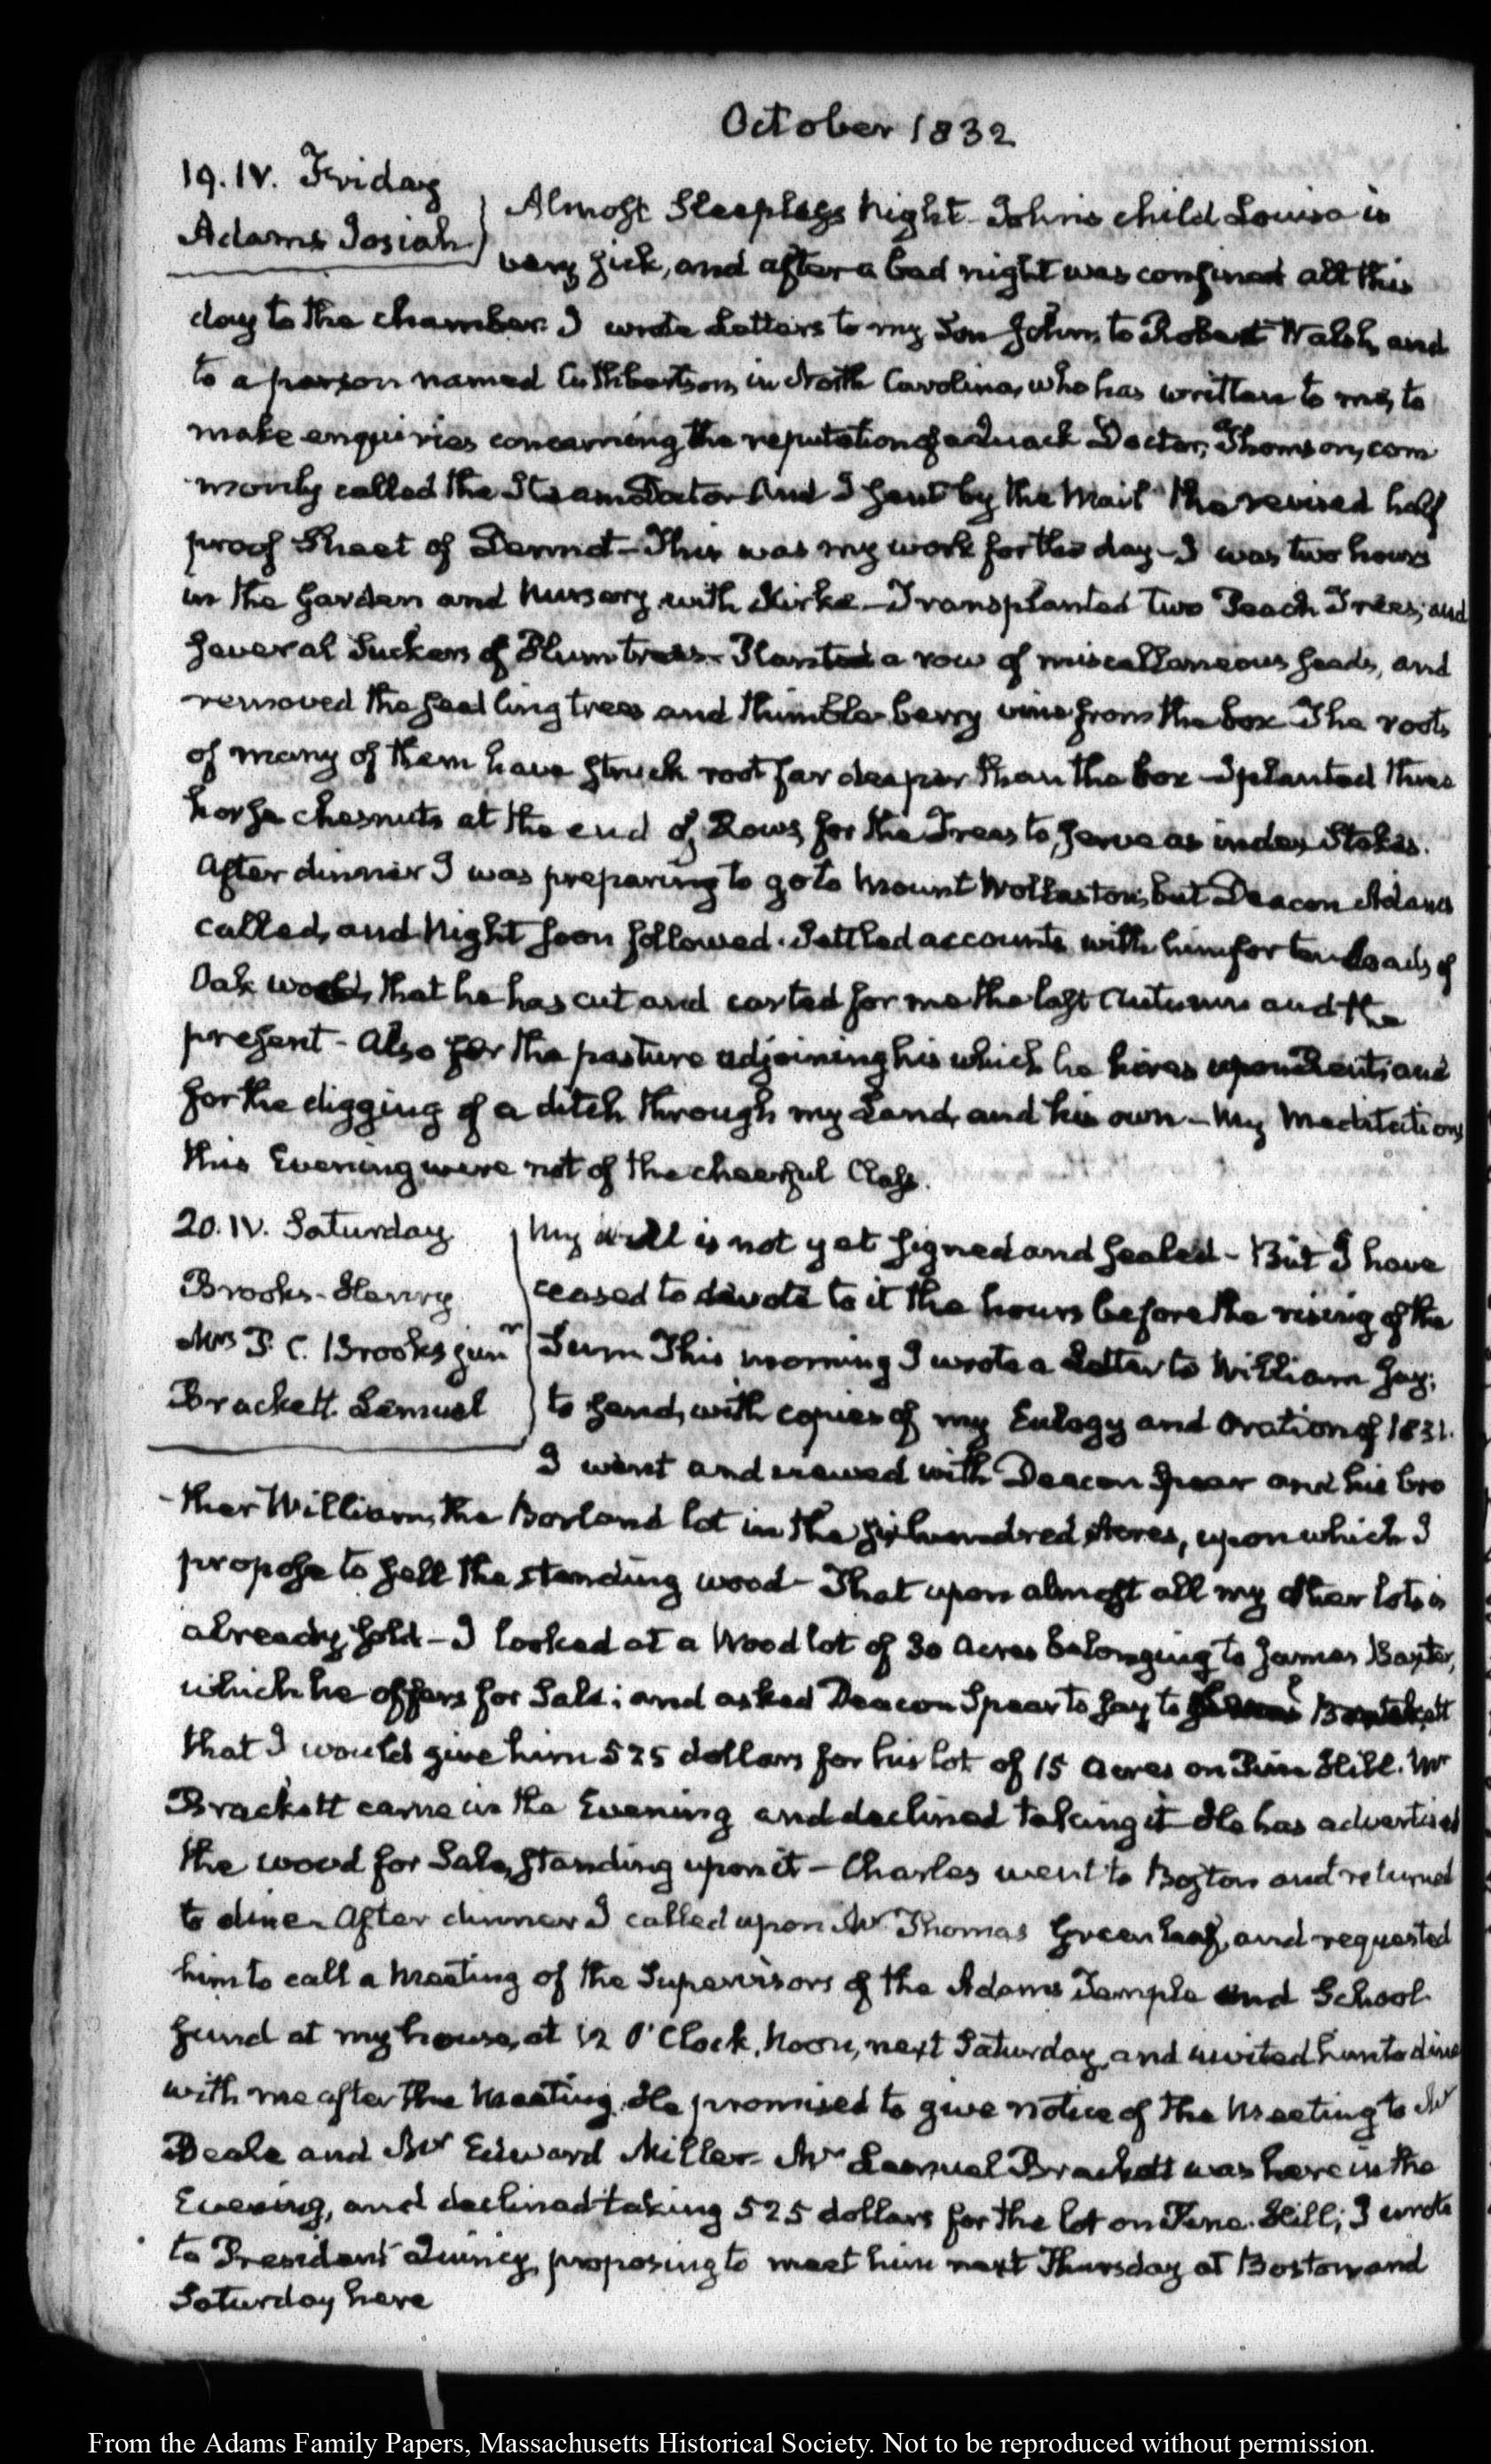 October 1832
19. IV. Friday
Adams Josiah
Almost Sleepless Night. John's child Louisa is
very sick, and after a bad night was confined all this
day to the chamber. I wrote Letters to my Son John, to Robert Walsh, and
to a person named Cuthbertson, in North Carolina, who has written to me, to
make enquiries concerning the reputation of a Quack Doctor, Thomson, com
monly called the Steam Doctor. And I sent by the Mail the revised half
proof Sheet of Dermot - This was my work for the day - I was two hours
in the Garden and Nursery with Kirke - Transplanted two Peach Trees, and
several Suckers of Plum trees - Planted a row of miscellaneous seeds, and
removed the seedling trees and thimble-berry vine from the box. The roots
of many of them have struck root far deeper than the box - I planted three
horse chesnuts at the end of Rows, for the Trees to serve as index Stakes.
After dinner I was preparing to go to Mount Wollaston, but Deacon Adams
called, and Night soon followed. Settled accounts with him for ten loads of
Oak wood, that he has cut and carted for me the last Autumn and the
present - Also for the pasture adjoining his which he hires upon Rent, and
for the digging of a ditch through my Land, and his own - My Meditations
this Evening were not of the cheerful Class.
20. IV. Saturday
Brooks - Henry
Mrs P. C. Brooks junr
Brackett. Lemuel
My will is not yet signed and sealed - But I have
ceased to devote to it the hours before the rising of the
Sun. This morning I wrote a Letter to William Jay;
to send, with copies of my Eulogy and Oration of 1831.
I went and viewed with Deacon Spear and his bro
ther William, the Borland lot in the six hundred Acres, upon which I
propose to sell the standing wood - That upon almost all my other lots is
already sold - I looked at a Wood lot of 30 Acres belonging to James Baxter,
which he offers for Sale; and asked Deacon Spear to say to Brackett
that I would give him 525 dollars for his lot of 15 Acres on Pine Hill. Mr
Brackett came in the Evening and declined taking it - He has advertised
the wood for Sale, standing upon it - Charles went to Boston and returned
to dine - After dinner I called upon Mr Thomas Greenleaf, and requested
him to call a Meeting of the Supervisors of the Adams Temple and School
fund at my house, at 12 O'Clock, Noon, next Saturday, and invited him to dine
with me after the Meeting. He promised to give notice of the Meeting to Mr
Beale and Mr Edward Miller - Mr Lemuel Brackett was here in the
Evening, and declined taking 525 dollars for the lot on Pine Hill; I wrote
to President Quincy, proposing to meet him next Thursday at Boston, and
Saturday here
From the Adams Family Papers, Massachusetts Historical Society. Not to be reproduced without permission.